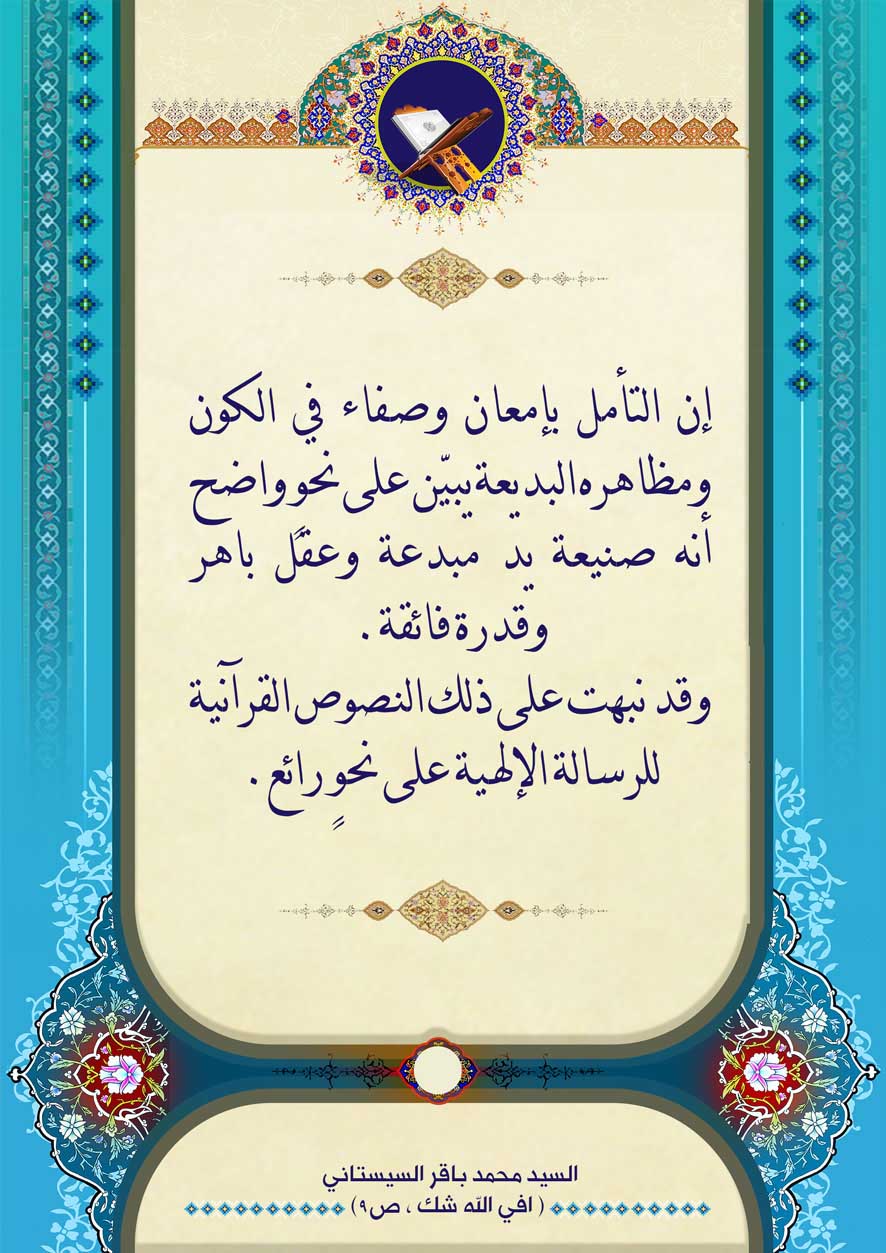 إن التأمل بإمعان وصفاء في الكون
ومظاهره البديعة يبيّن على نحو واضح
أنه صنيعة يد مبدعة وعقَل باهر
وقدرة فائقة .
وقد نبهت على ذلك النصوص القرآنية
للرسالة الإلهية على نحوٍ رائع .
السيد محمد باقر السيستاني
( افي الله شك ، ص٩ )